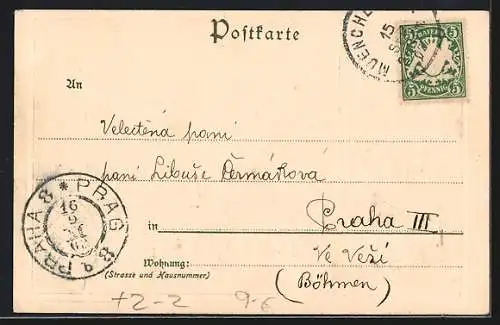 Postkarte
MUENCHE
15
BAYERN
5 5
PFENNIG
An
Velectěná paní
paní Libuše Čermáková
in Praha III
Ve Věží
Wohnung:
(Strasse und Hausnummer)
(Böhmen)
PRAHA 8 * PRAG 8 a
16
+2-2 9-6